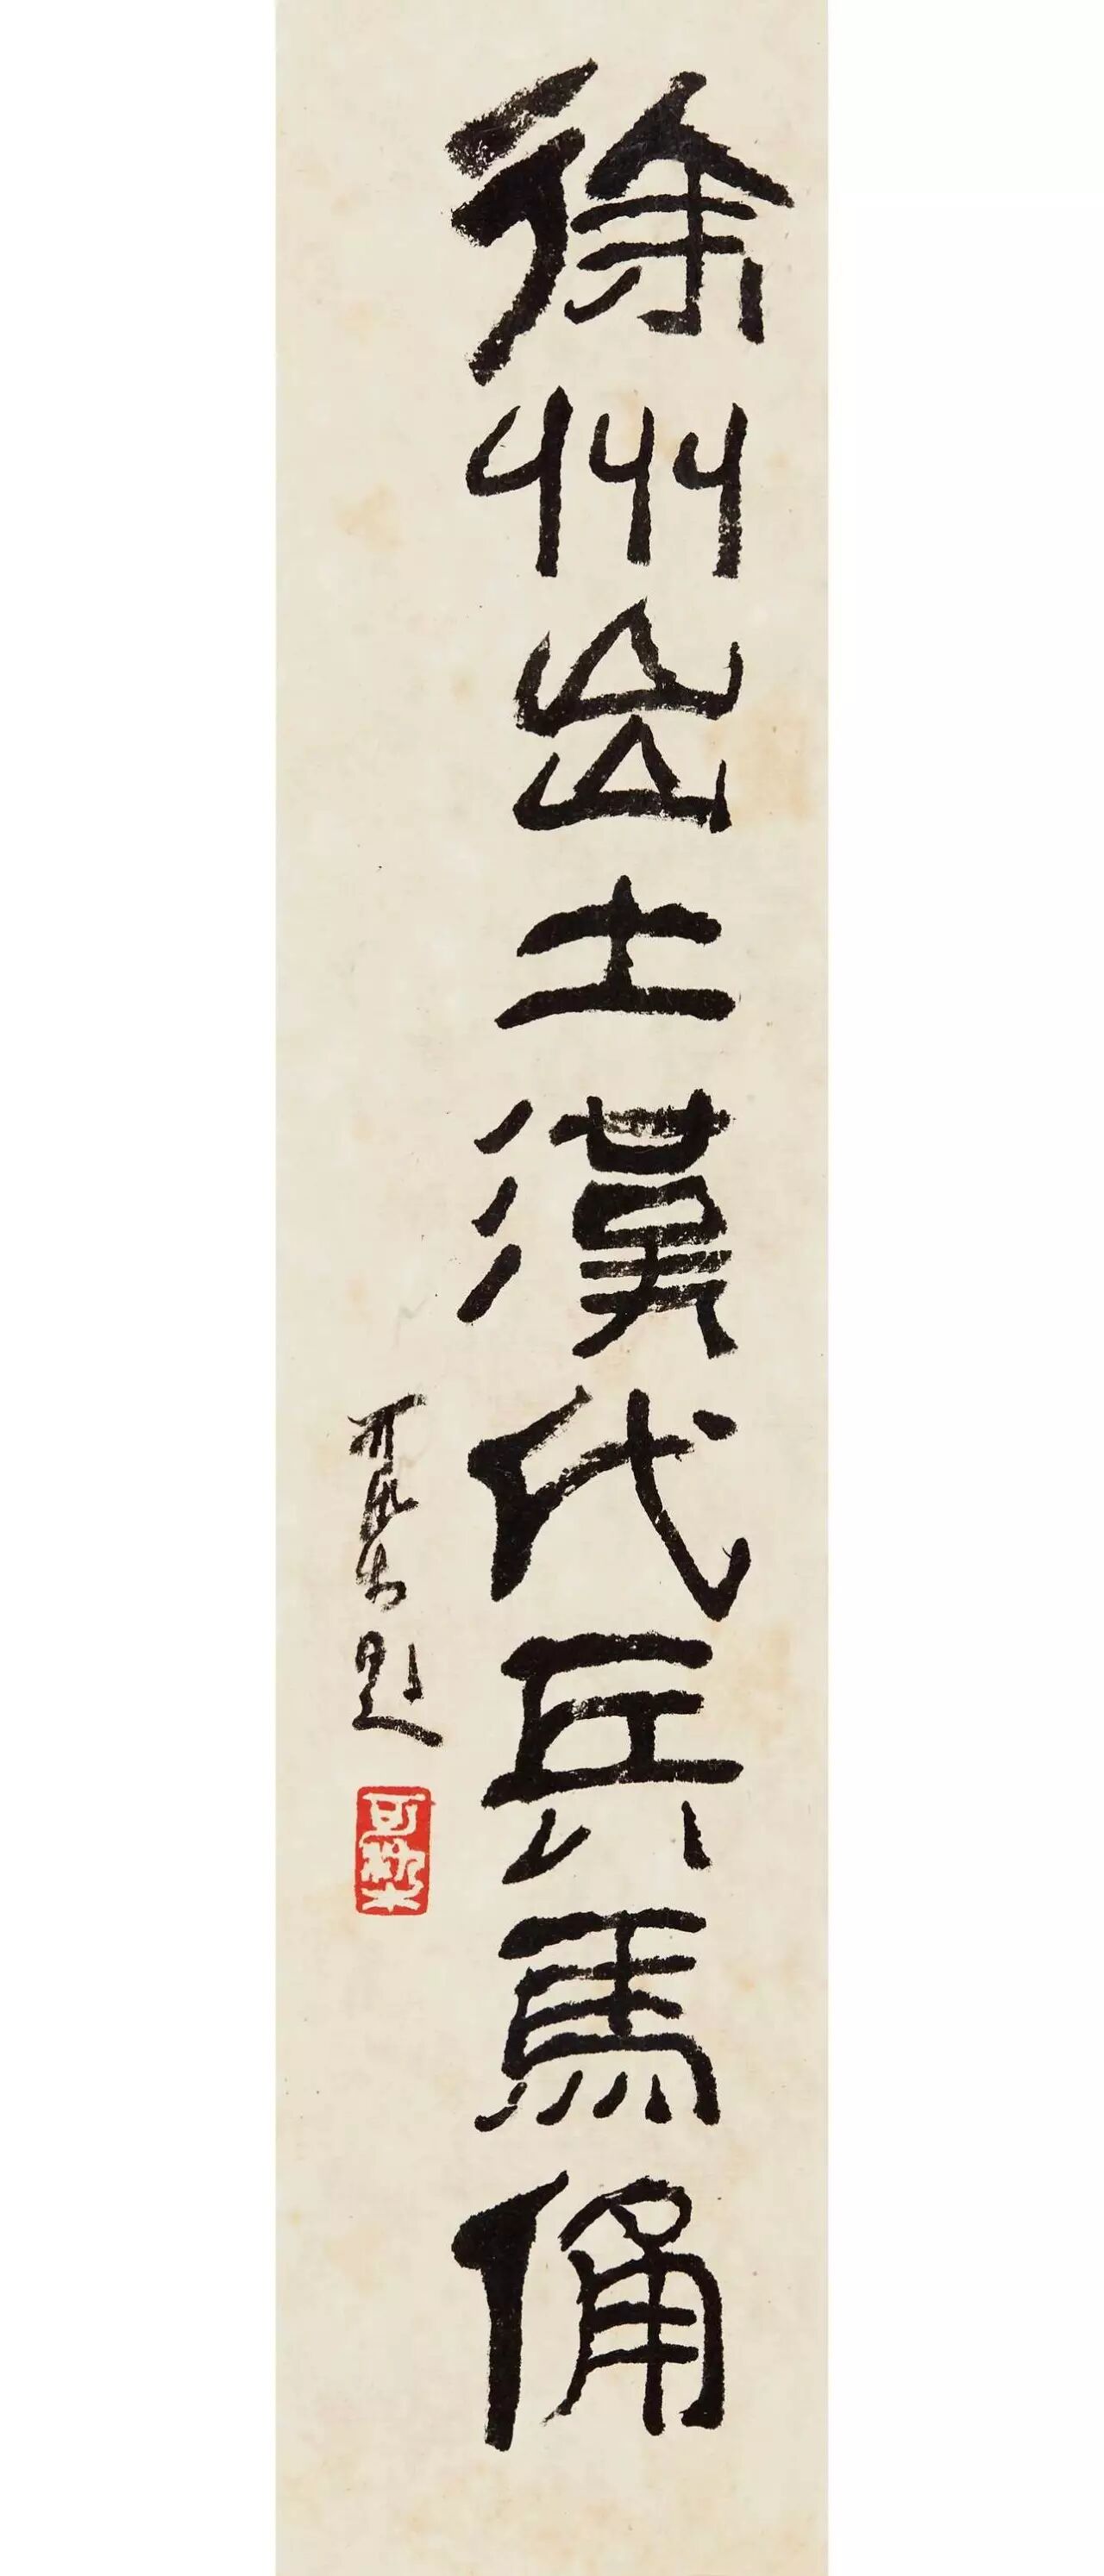 徐州出土漢代兵馬俑
可染題
可染